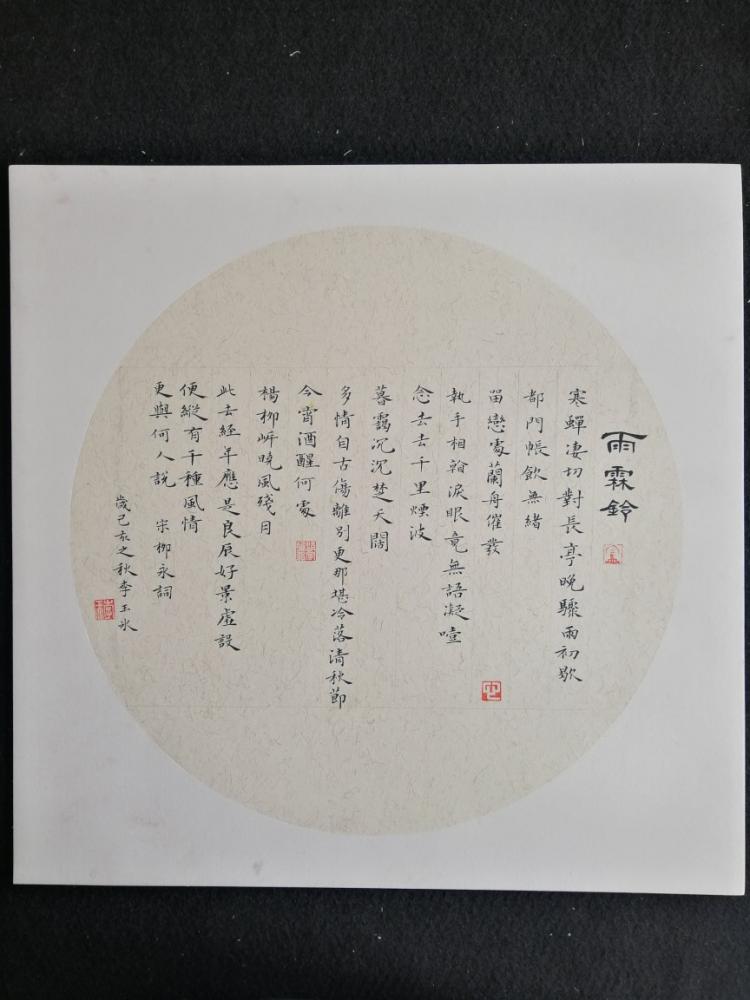 雨霖鈴
寒蟬凄切對長亭晚驟雨初歇
都門帳飲無緒
留戀處蘭舟催發
執手相看淚眼竟無語凝噎
念去去千里煙波
暮靄沉沉楚天闊
多情自古傷離別更那堪冷落清秋節
今宵酒醒何處
楊柳岸曉風殘月
此去經年應是良辰好景虛設
便縱有千種風情
更與何人說 宋柳永詞
歲己亥之秋李玉冰